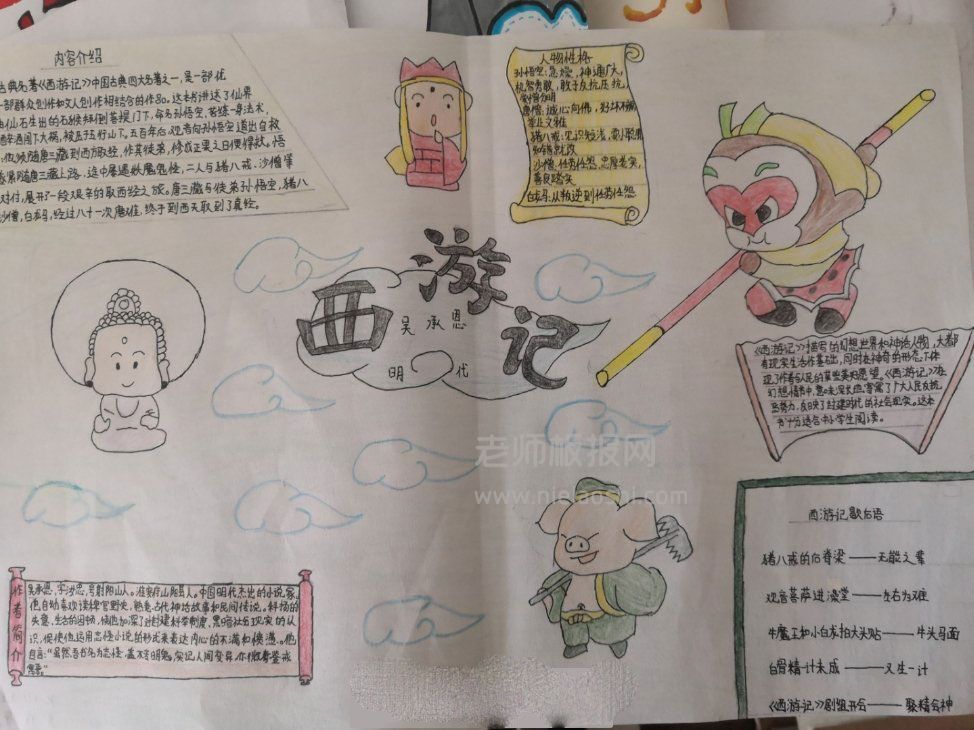 内容介绍
古典名著《西游记》中国古典四大名著之一，是一部优
一部群众创作和文人创作相结合的作品。这本书讲述了仙界
由仙石生出的石猴拜到菩提门下，命名孙悟空，苦练一身法术，
闹下大祸，被压于五行山下。五百年后，观音向孙悟空道出自救
随唐三藏到西方取经，作其徒弟，修成正果之日便得救。悟
随唐三藏上路，途中屡遇妖魔鬼怪，二人与猪八戒，沙僧等
对付，展开了一段艰辛的取西经之旅。唐三藏与徒弟孙悟空，猪八
沙僧，白龙马，经过八十一次磨难，终于到西天取到了真经。
人物性格
孙悟空：急燥，神通广大，
机智勇敢，敢于反抗压抗，
爱憎分明
唐僧：诚心向佛，
举止文雅
猪八戒：见识短浅，爱小聪明
知错就改
沙僧：任劳任怨，忠厚老实，
善良踏实
白龙马：从叛逆到任劳任怨
西游记
吴承恩
明代
《西游记》描写的幻想世界和神话人物，大都
有现实生活作基础，同时在神奇的形态下体
现了作者与人民的某些美好愿望。《西游记》
幻想情节中，意味深长地寄寓了广大人民反抗
恶势力，反映了封建时代的社会现实。这本
书十分适合中小学生阅读。
老师板报网
西游记歇后语
猪八戒的后脊梁——无能之辈
观音菩萨进澡堂——左右为难
牛魔王和小白龙拍大头贴——牛头马面
白骨精一计未成——又生一计
《西游记》剧组开会——聚精会神
作者简介
吴承恩，字汝忠，号射阳山人。淮安府山阳县人。中国明代杰出的小说家，
他自幼喜欢读稗官野史，熟悉古代神话故事和民间传说。科场的
失意，生活的困顿，使他加深了对封建科举制度，黑暗社会现实的认
识，促使他运用志怪小说的形式来表达内心的不满和愤懑。他
自言：“虽然吾书名为志怪，盖不专明鬼，实记人间变异，亦微有鉴戒
寓焉。”